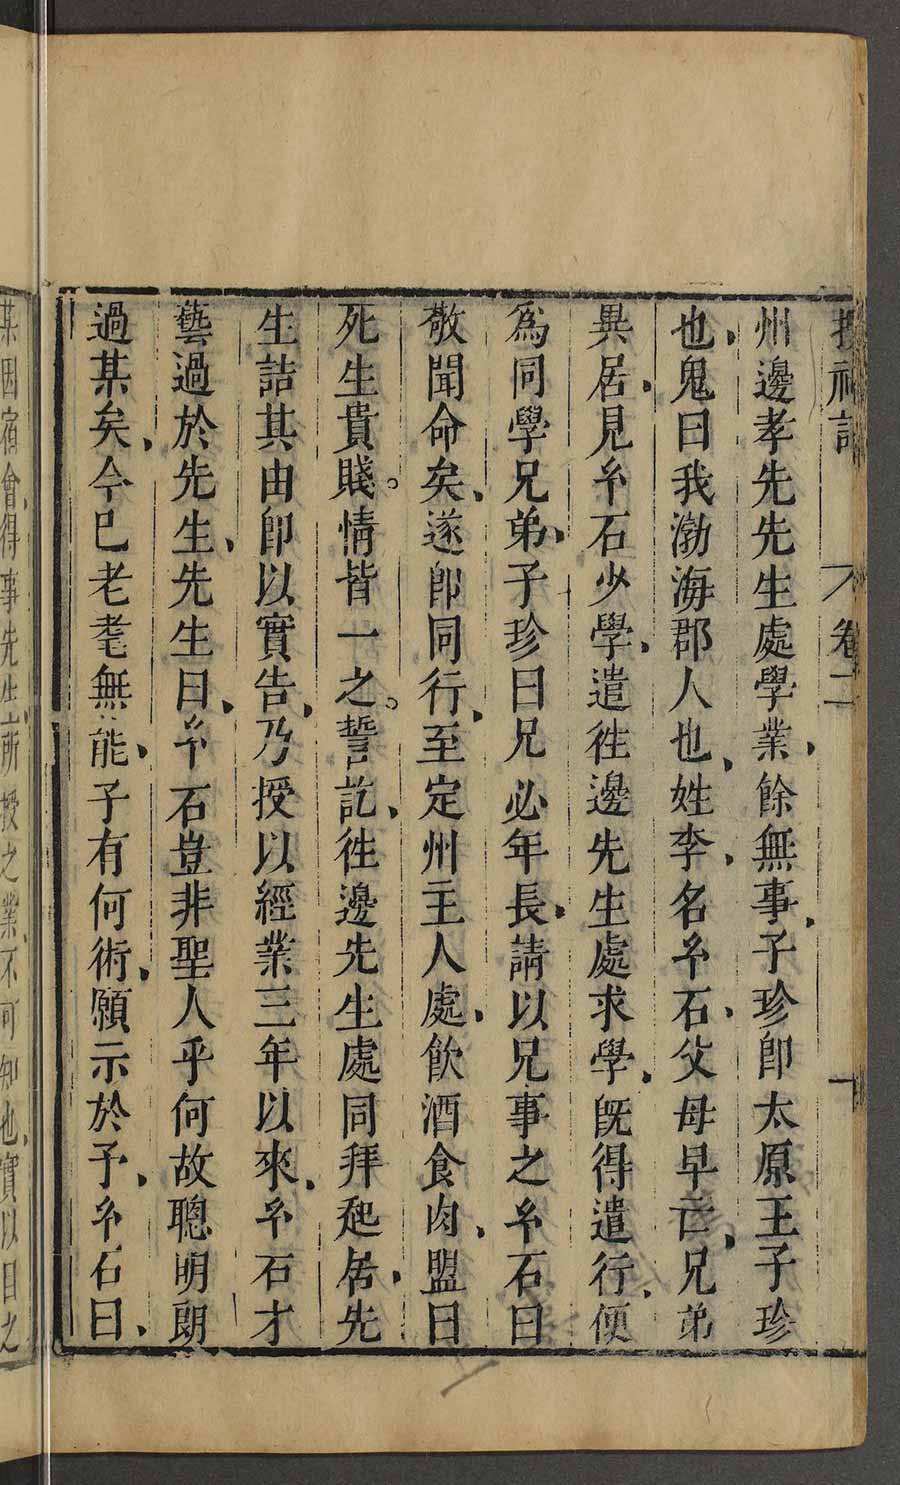 搜神記　卷二　一
州邊孝先先生處學業餘無事子珍卽太原王子珍
也鬼曰我渤海郡人也姓李名糸石父母早亡兄弟
異居見糸石少學遣徃邊先生處求學旣得遣行便
爲同學兄弟子珍曰兄必年長請以兄事之糸石曰
敬聞命矣遂卽同行至定州主人處飮酒食肉盟曰
死生貴賤。情皆一之。誓訖徃邊先生處同拜起居先
生詰其由卽以實告乃授以經業三年以來糸石才
藝過於先生先生曰糸石豈非聖人乎何故聰明朗
過某矣今已老耄無能子有何術願示於予糸石曰
某因宿會得事先生所授之業不可知也實以目之